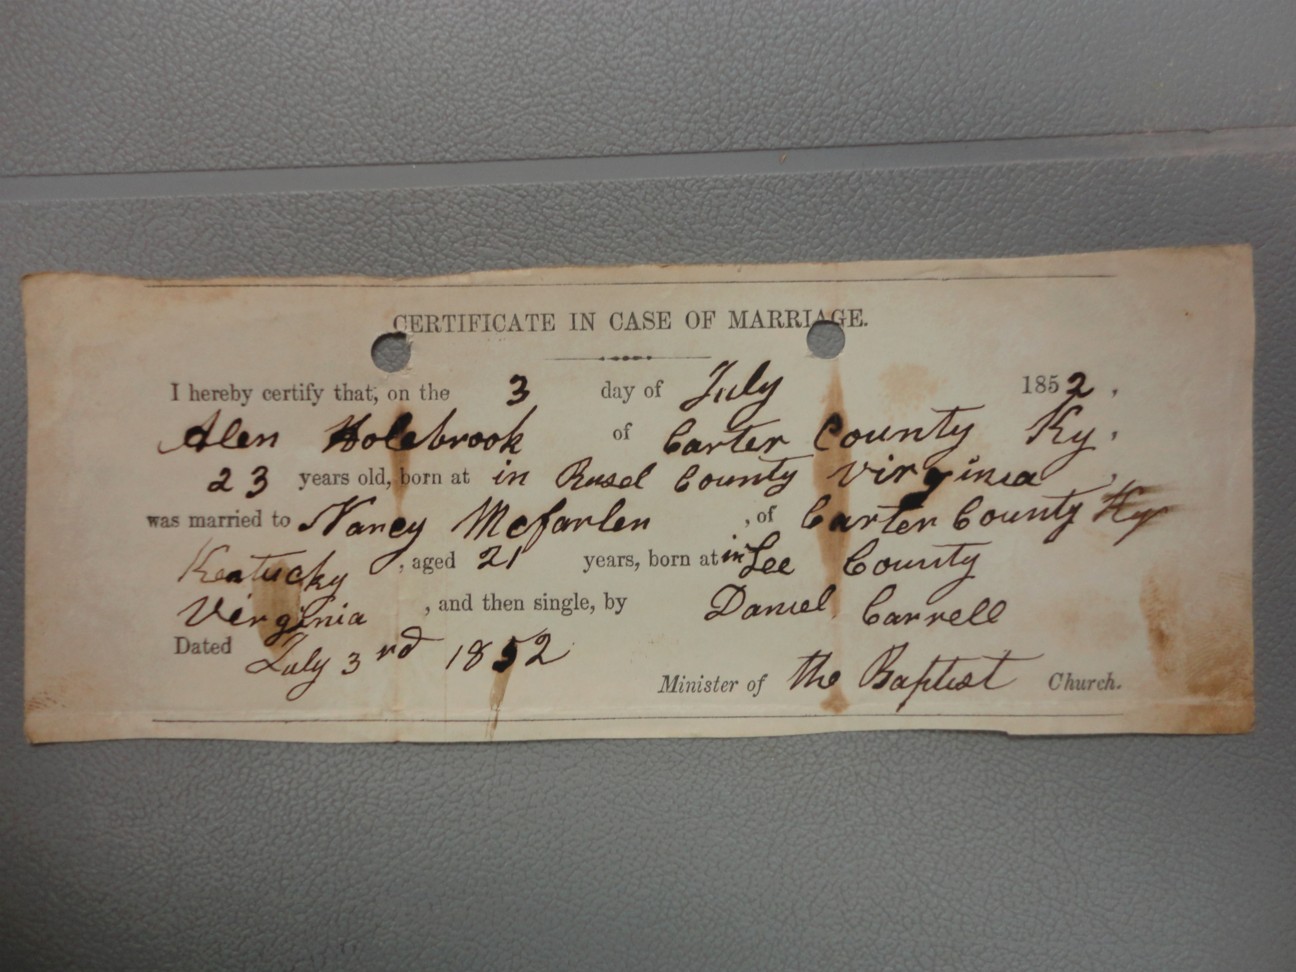 CERTIFICATE IN CASE OF MARRIAGE.
I hereby certify that, on the 3 day of July 1852.
Alen Holebrook of Carter County Ky.
23 years old, born at in Rusel County Virginia,
was married to Nancy Mcfarlen, of Carter County Ky
Kentucky, aged 21 years, born at in Lee County
Virginia, and then single, by Daniel Carrell
Dated July 3rd 1852
Minister of the Baptist Church.